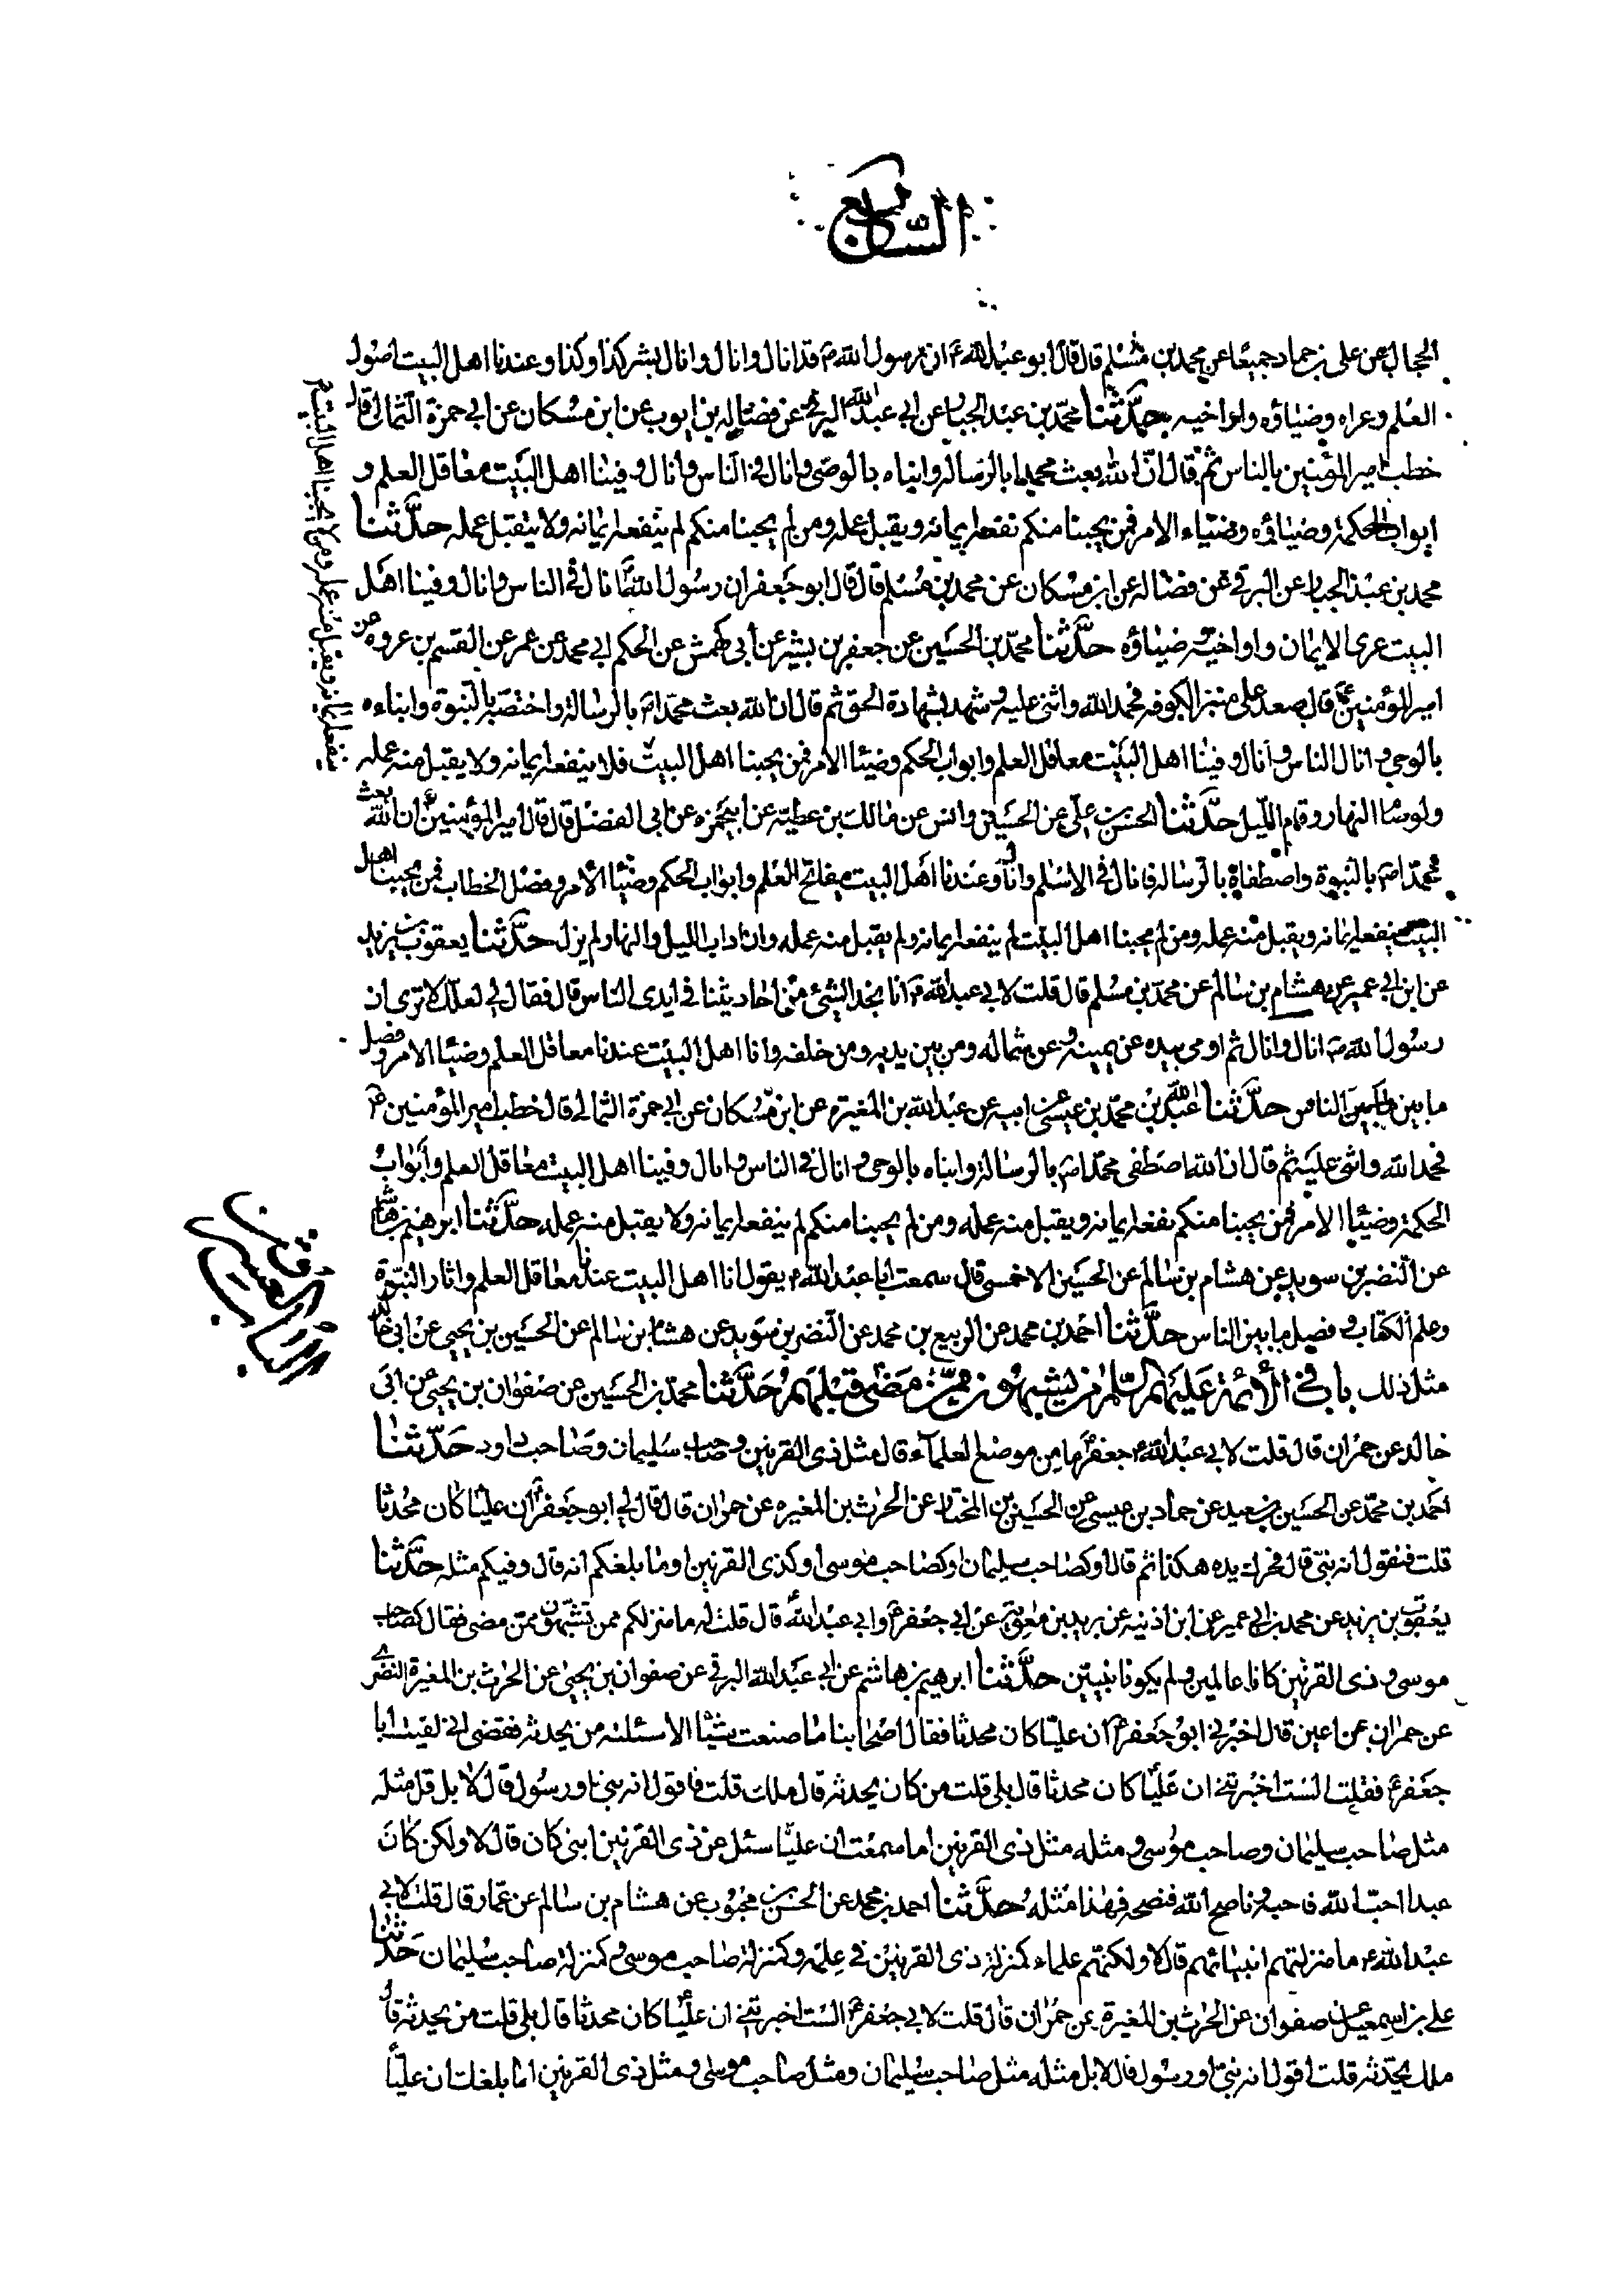 السابع
الحجال عن على بن حماد جميعا عن محمد بن مسلم قال قال ابو عبد الله ع ان رسول الله ص قد انال وانال وانال يشير كذا وكذا وعندنا اهل البيت اصول
العلم وعراه وضياؤه واواخيه حدثنا محمد بن عبد الجبار عن ابي عبد الله البرقى عن فضاله بن ايوب عن ابن مسكان عن ابي حمزة الثمالى قال
خطب امير المؤمنين بالناس ثم قال ان الله بعث محمدا بالرساله وانباه بالوحى وانال في الناس وانال وفينا اهل البيت معاقل العلم و
ابواب الحكمة وضياؤه وضياء الامر فمن يحبنا منكم نفعه ايمانه ويقبل عمله ومن لم يحبنا منكم لم ينفعه ايمانه ولا يتقبل عمله حدثنا
محمد بن عبد الجبار عن البرقي عن فضاله عن ابن مسكان عن محمد بن مسلم قال قال ابو جعفر ان رسول الله انال في الناس وانال وفينا اهل
البيت عرى الايمان واواخيه وضياؤه حدثنا محمد بن الحسين عن جعفر بن بشير عن أبي كهمش عن الحكم ابي محمد عن عمر عن القسم بن عروه عن
امير المؤمنين قال صعد على منبر الكوفه فحمد الله واثنى عليه وشهد بشهادة الحق ثم قال ان الله بعث محمدا ص بالرسالة واختصه بالنبوة وانباءه
بالوحي وانال الناس وانال وفينا اهل البيت معاقل العلم وابواب الحكم وضيئا الامر فمن يحبنا اهل البيت فلا ينفعه ايمانه ولا يقبل منه عمله
ولو صا النهار وقام الليل حدثنا الحسن بن علي عن الحسين وانس عن مالك بن عطيه عن ابيحمزه عن ابى الفضل قال قال امير المؤمنين ان الله بعث
محمدا ص بالنبوة واصطفاه بالرساله فانال في الاسلم وانا وعندنا اهل البيت مفاتح العلم وابواب الحكم وضيئا الامر وفصل الخطاب فمن يحبنا اهل
البيت ينفعه ايمانه ويقبل منه عمله ومن لم يحبنا اهل البيت لم ينفعه ايمانه ولم يقبل منه عمله وان اداب الليل والنهار ولم يزل حدثنا يعقوب بن يزيد
عن ابن ابي عمير عن هشام بن سالم عن محمد بن مسلم قال قلت لابي عبد الله انا نجد الشئ من احاديثنا في ايدى الناس قال فقال لي لعلك لا ترى ان
رسول الله ص انال وانال ثم اومى بيده عن يمينه وعن شماله ومن بين يديه ومن خلفه وانا اهل البيت عندنا معاقل العلم وضيئا الامر وفصل
ما بين الناس حدثنا عبد الله بن محمد بن عيسى عن ابيه عن عبد الله بن المغيره عن ابن مسكان عن ابي حمزة الثمالى قال خطب امير المؤمنين ع
فحمد الله واثنى عليه ثم قال ان الله اصطفى محمدا ص بالرسالة وانباه بالوحي وانال في الناس وانال وفينا اهل البيت معاقل العلم وابواب
الحكمة وضيئا الامر فمن يحبنا منكم نفعه ايمانه ويقبل منه عمله ومن لم يحبنا منكم لم ينفعه ايمانه ولا يقبل منه عمله حدثنا ابرهيم بن هاشم
عن النضر بن سويد عن هشام بن سالم عن الحسين الاخمسى قال سمعت ابا عبد الله ع يقول انا اهل البيت عندنا معاقل العلم واثار النبوة
وعلم الكتاب وفصل ما بين الناس حدثنا احمد بن محمد عن الربيع بن محمد عن النضر بن سويد عن هشام بن سالم عن الحسين بن يحيى عن ابى خالد
مثل ذلك باب في الأئمة عليهم السلام من يشبهون ممن مضى قبلهم حدثنا محمد بن الحسين عن صفوان بن يحيى عن ابى
خالد عن حمران قال قلت لابي عبد الله جعفر ما من موضع العلماء قال مثل ذى القرنين وصاحب سليمان وصاحب داود حدثنا
احمد بن محمد عن الحسين بن سعيد عن حماد بن عيسى عن الحسين بن المختار عن الحرث بن المغيره عن حمران قال قال لي ابو جعفر ان عليا كان محدثا
قلت فنقول انه نبي قال فحرك يده هكذا ثم قال او كصاحب سليمان او كصاحب موسى او كذى القرنين اوما بلغكم انه قال وفيكم مثله حدثنا
يعقوب بن يزيد عن محمد بن ابي عمير عن ابن اذنيه عن بريد بن معويه عن ابي جعفر وابي عبد الله قال قلت له ما منزلكم ممن تشبهون ممن مضى فقال كصاحب
موسى وذى القرنين كانا عالمين ولم يكونا نبيين حدثنا ابرهيم بن هاشم عن ابي عبد الله البرقي عن صفوان بن يحيى عن الحرث بن المغيرة النضرى
عن حمران عن اعين قال اخبرني ابو جعفر ان عليا كان محدثا فقال اصحابنا ما صنعت شيئا الا سئلته من يحدثه فقضى اني لقيت ابا
جعفر فقلت الست اخبرتني ان عليا كان محدثا قال بلى قلت من كان يحدثه قال ملك قلت فاقول انه نبي او رسول قال لا بل قل مثله
مثل صاحب سليمان وصاحب موسى ومثله مثل ذى القرنين اما سمعت ان عليا سئل عن ذى القرنين انبي كان قال لا ولكن كان
عبدا احب الله فاحبه وناصح الله فنصحه فهذا مثله حدثنا احمد بن محمد عن الحسن بن محبوب عن هشام بن سالم عن عمار قال قلت لابي
عبد الله ع ما منزلتهم انبياء هم قال لا ولكنهم علماء كمنزلة ذى القرنين في علمه وكمنزلة صاحب موسى وكمنزلة صاحب سليمان حدثنا
على بن اسمعيل عن صفوان عن الحرث بن المغيرة عن حمران قال قلت لابي جعفر الست اخبرتني ان عليا كان محدثا قال بلى قلت من يحدثه قال
ملك يحدثه قلت اقول انه نبي او رسول قال لا بل مثله مثل صاحب سليمان ومثل صاحب موسى ومثل ذى القرنين اما بلغك ان عليا